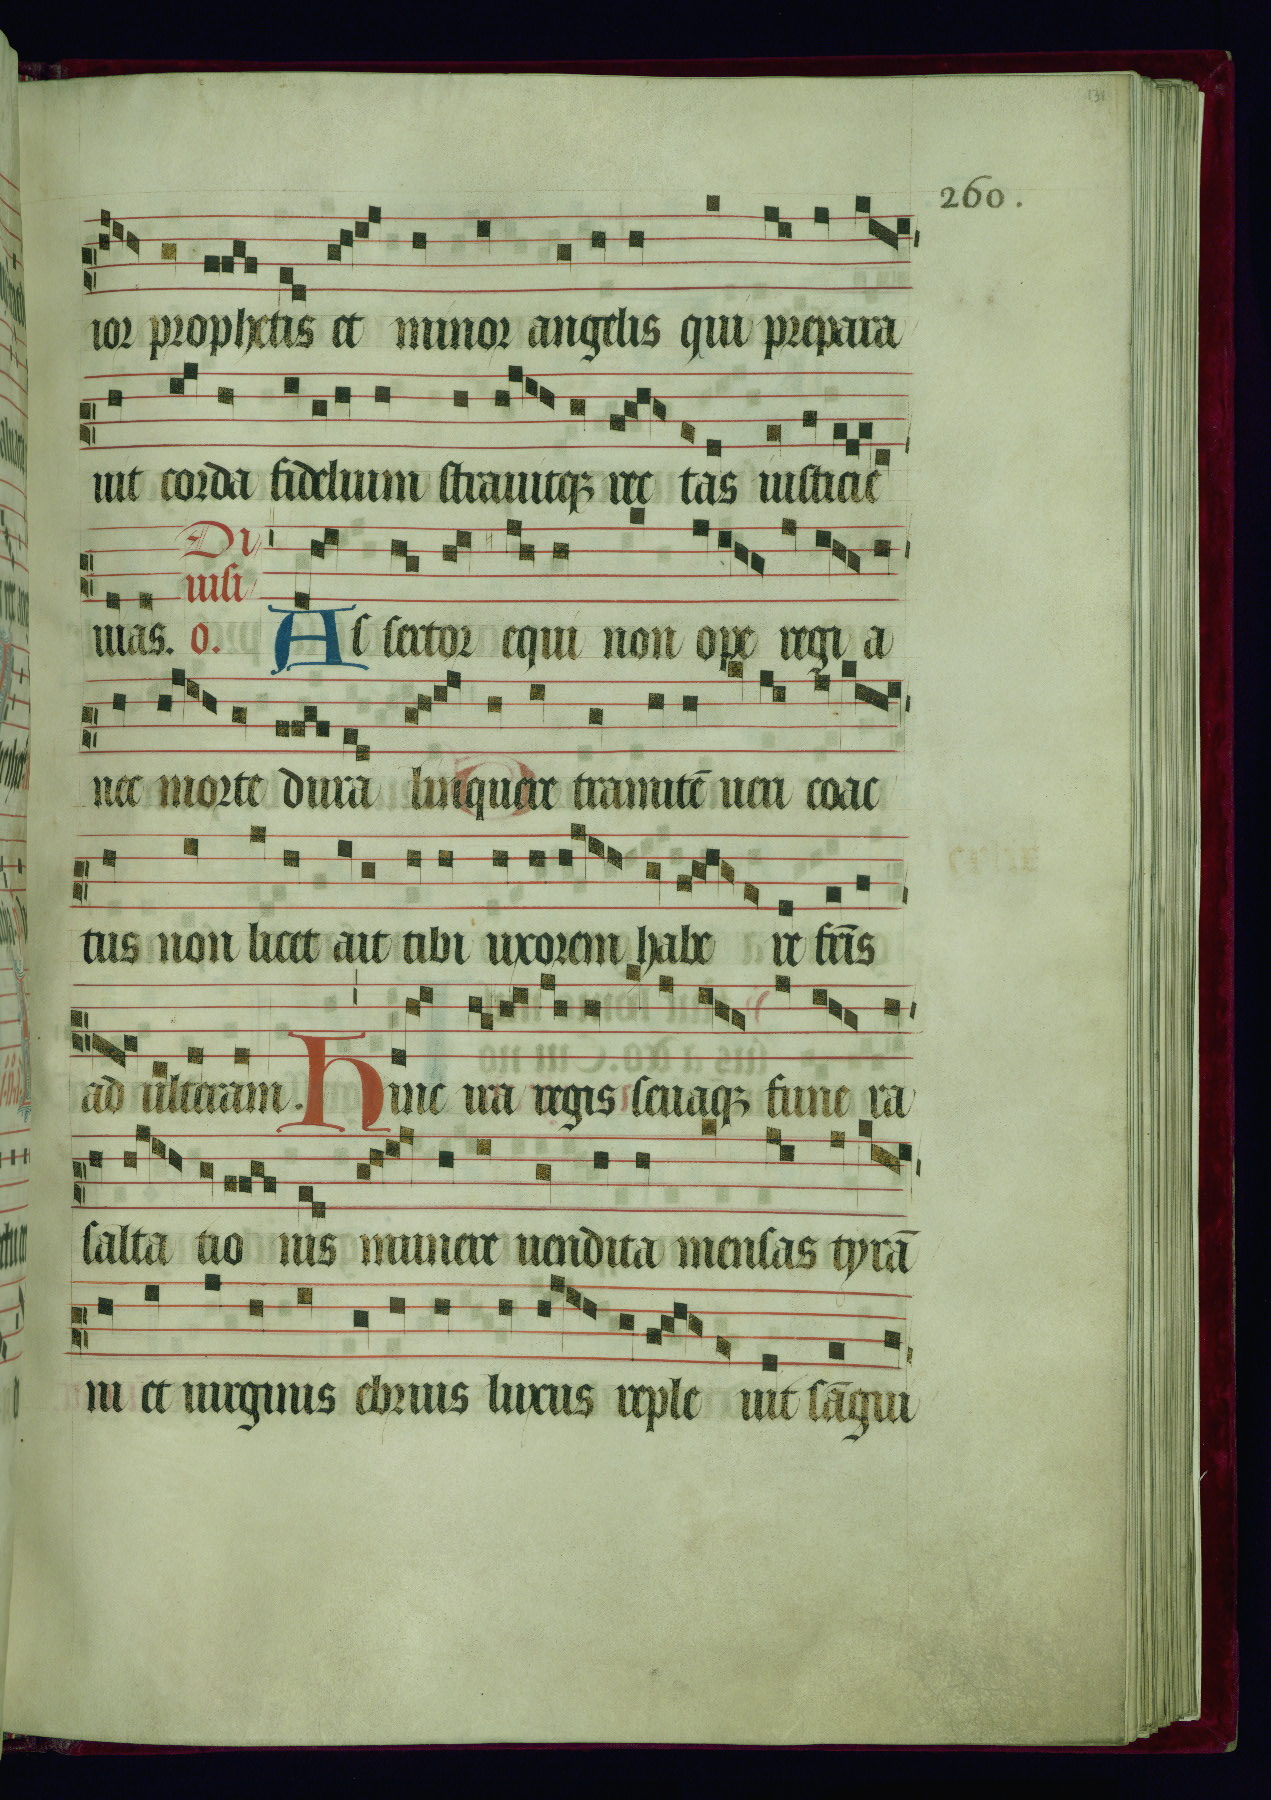 260.
ior prophetis et minor angelis qui prepara
uit corda fidelium strauitqꝫ rec tas iusticie
Di
uisi
uias. o. As sertor equi non ope regi a
nec morte dura linquere tramitē ueri coac
tus non licet ait tibi uxorem habe re fr̄is
ad ulteram. hinc ira regis seuaqꝫ fune ra
salta tio nis munere uendita mensas tyrā
ni et uirginis ebrius luxus reple uit sāgui